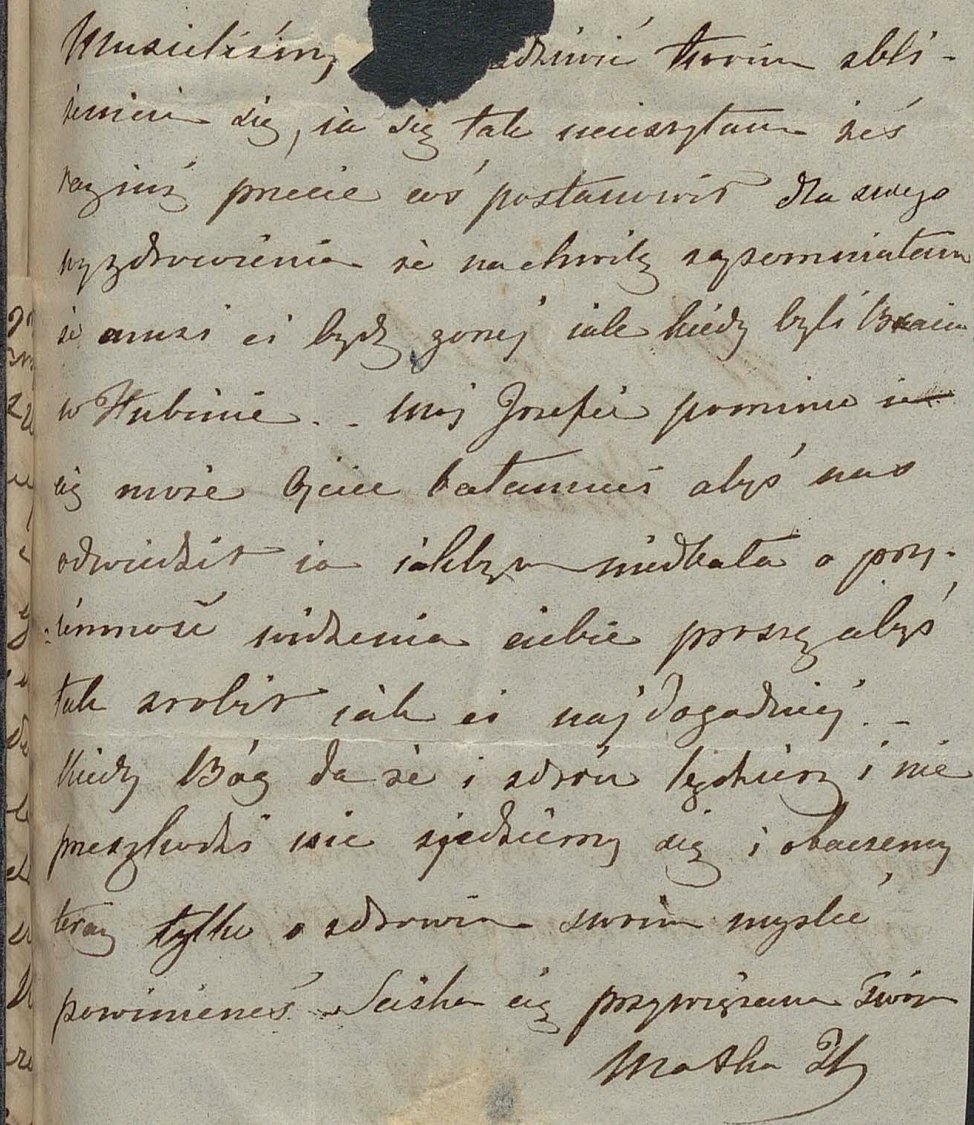 Musieliśmy dziwić twoim zbli-
żeniem się, ia się tak ucieszyłam żeś
raz już przecie coś postanowił dla swego
wyzdrowienia że na chwilę zapomniałam
że musi ci bydź gorzej iak kiedy byli Bracia
w Hubinie . . Mój Józefie pomimo
cię może życie bałamucić abyś nas
odwiedził ia iakbym niedbała o przy-
iemność widzenia ciebie proszę abyś
tak zrobił iak ci najdogodniej . _
Kiedy Bóg da że i zdrów będziesz i nie
przeszkodzi nic zjedziemy się i obaczemy
teraz tylko o zdrowiu swoim myśleć
powinieneś. Sciska cię przywiązana Twoia
Matka